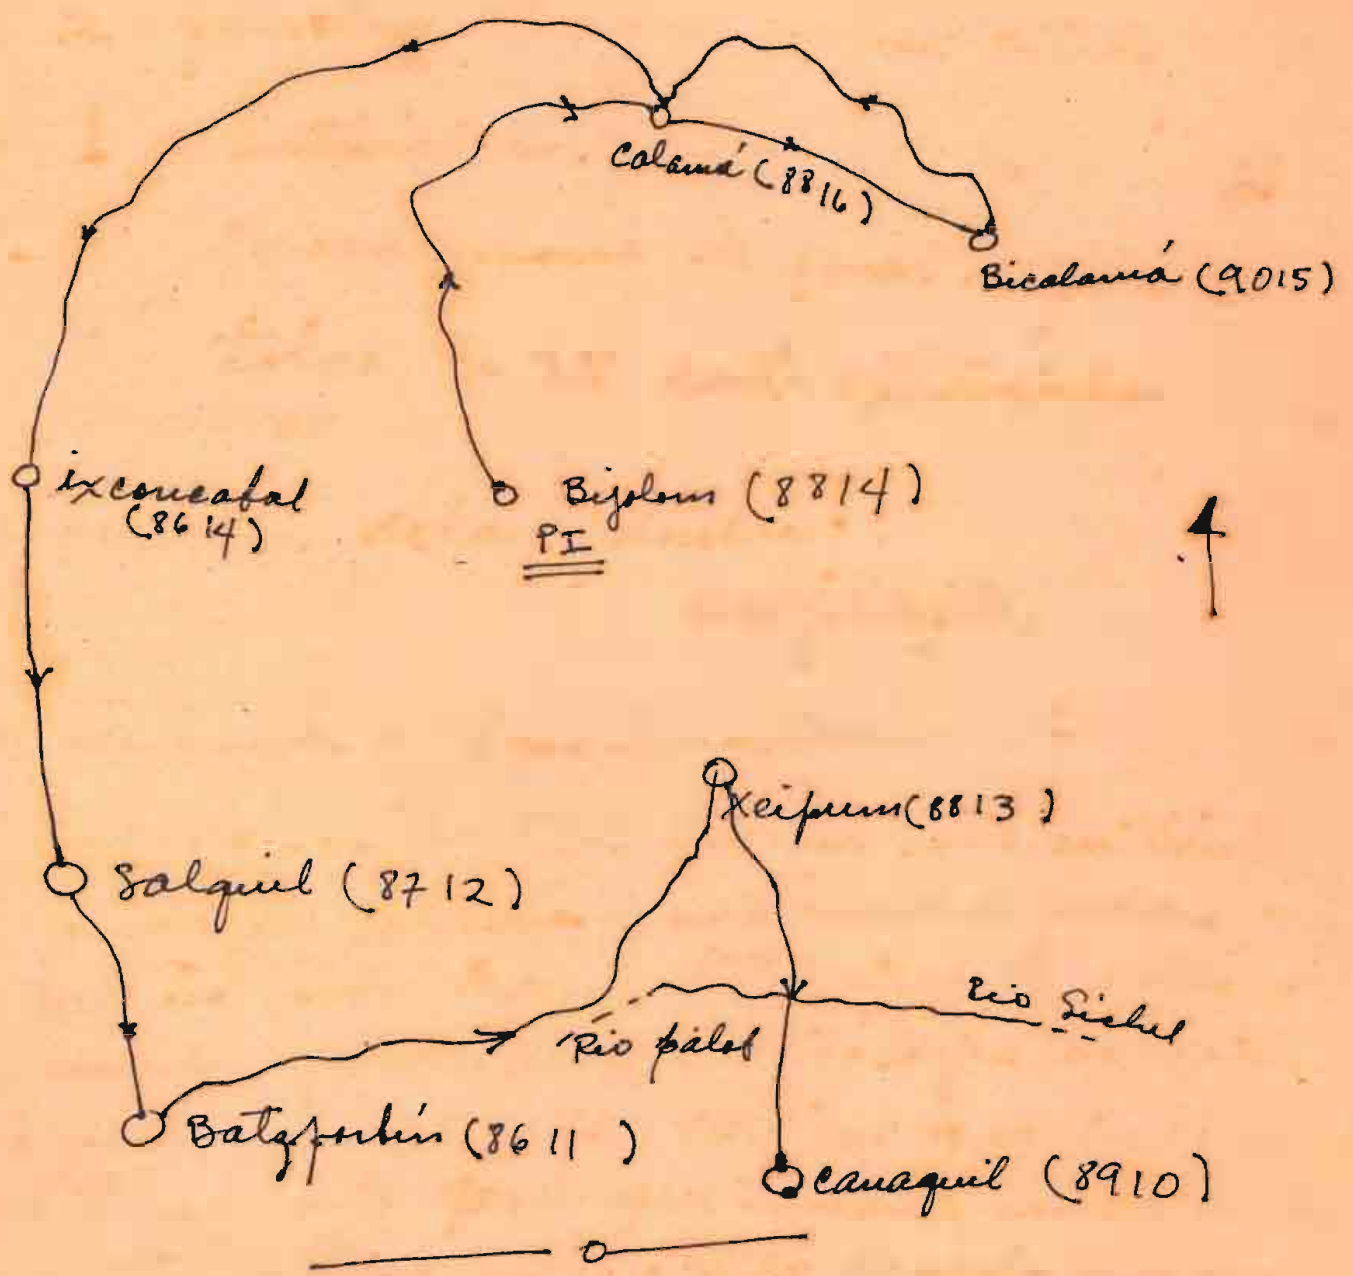 Calamá (8816)
Bicalamá (9015)
ixconcabal
(8614)
Bijolom (8814)
PI
Xeipum (8813)
Salquil (8712)
Rio Sichel
Rio palob
Batzportín (8611)
Canaquil (8910)